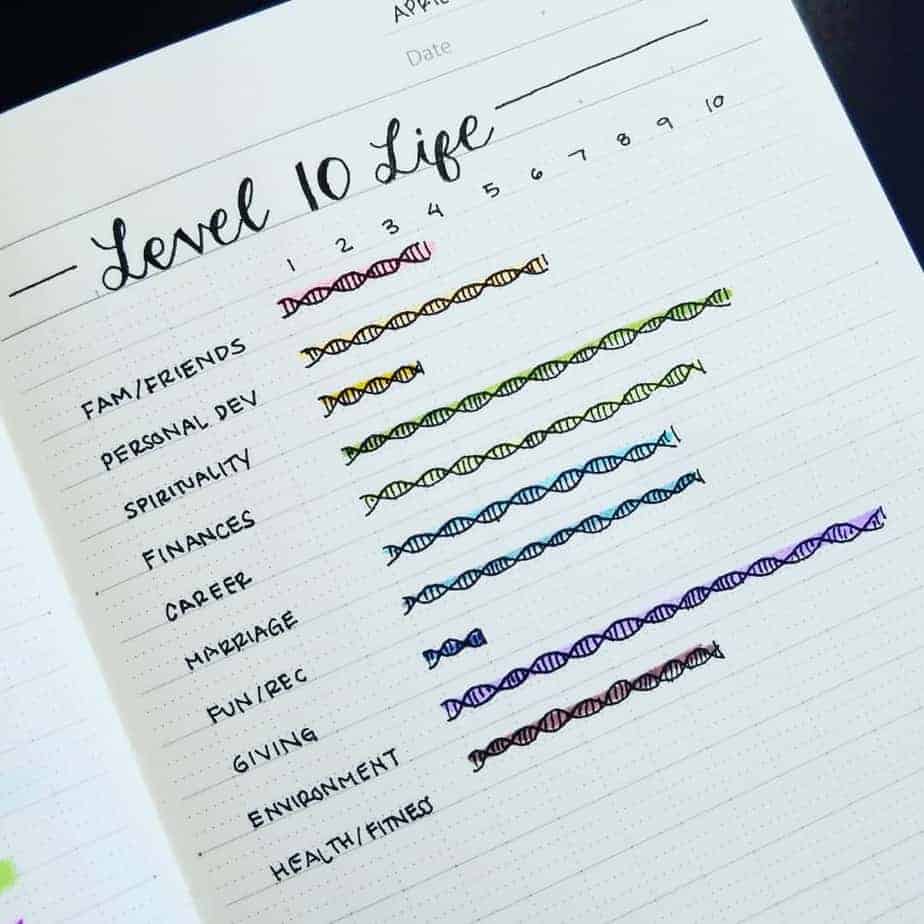 Date
Level 10 Life
1 2 3 4 5 6 7 8 9 10
FAM/FRIENDS
PERSONAL DEV
SPIRITUALITY
FINANCES
CAREER
MARRIAGE
FUN/REC
GIVING
ENVIRONMENT
HEALTH/FITNESS